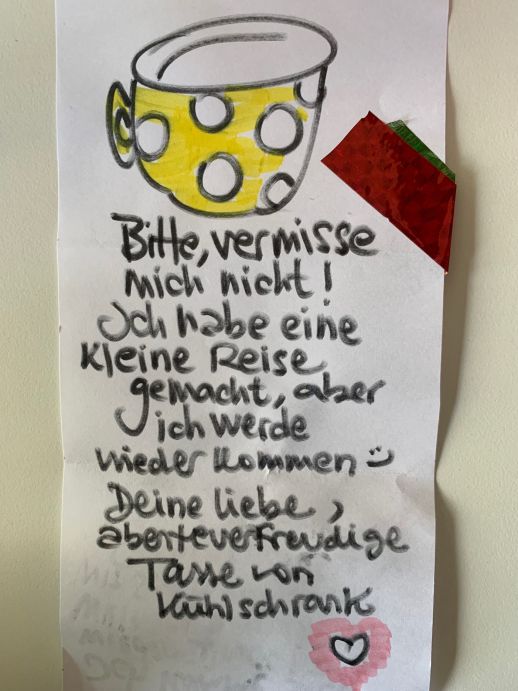 Bitte, vermisse
mich nicht!
Ich habe eine
kleine Reise
gemacht, aber
ich werde
wieder kommen
Deine liebe,
abenteuerfreudige
Tasse von
Kühlschrank